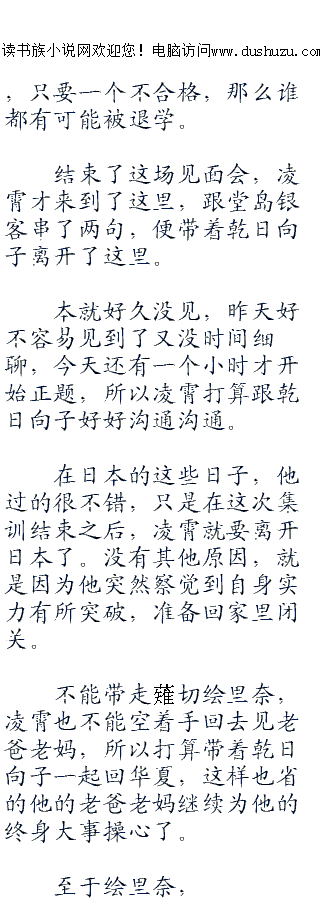 读书族小说网欢迎您！电脑访问www.dushuzu.com
，只要一个不合格，那么谁
都有可能被退学。
结束了这场见面会，凌
霄才来到了这里，跟堂岛银
客串了两句，便带着乾日向
子离开了这里。
本就好久没见，昨天好
不容易见到了又没时间细
聊，今天还有一个小时才开
始正题，所以凌霄打算跟乾
日向子好好沟通沟通。
在日本的这些日子，他
过的很不错，只是在这次集
训结束之后，凌霄就要离开
日本了。没有其他原因，就
是因为他突然察觉到自身实
力有所突破，准备回家里闭
关。
不能带走薙切绘里奈，
凌霄也不能空着手回去见老
爸老妈，所以打算带着乾日
向子一起回华夏，这样也省
的他的老爸老妈继续为他的
终身大事操心了。
至于绘里奈，